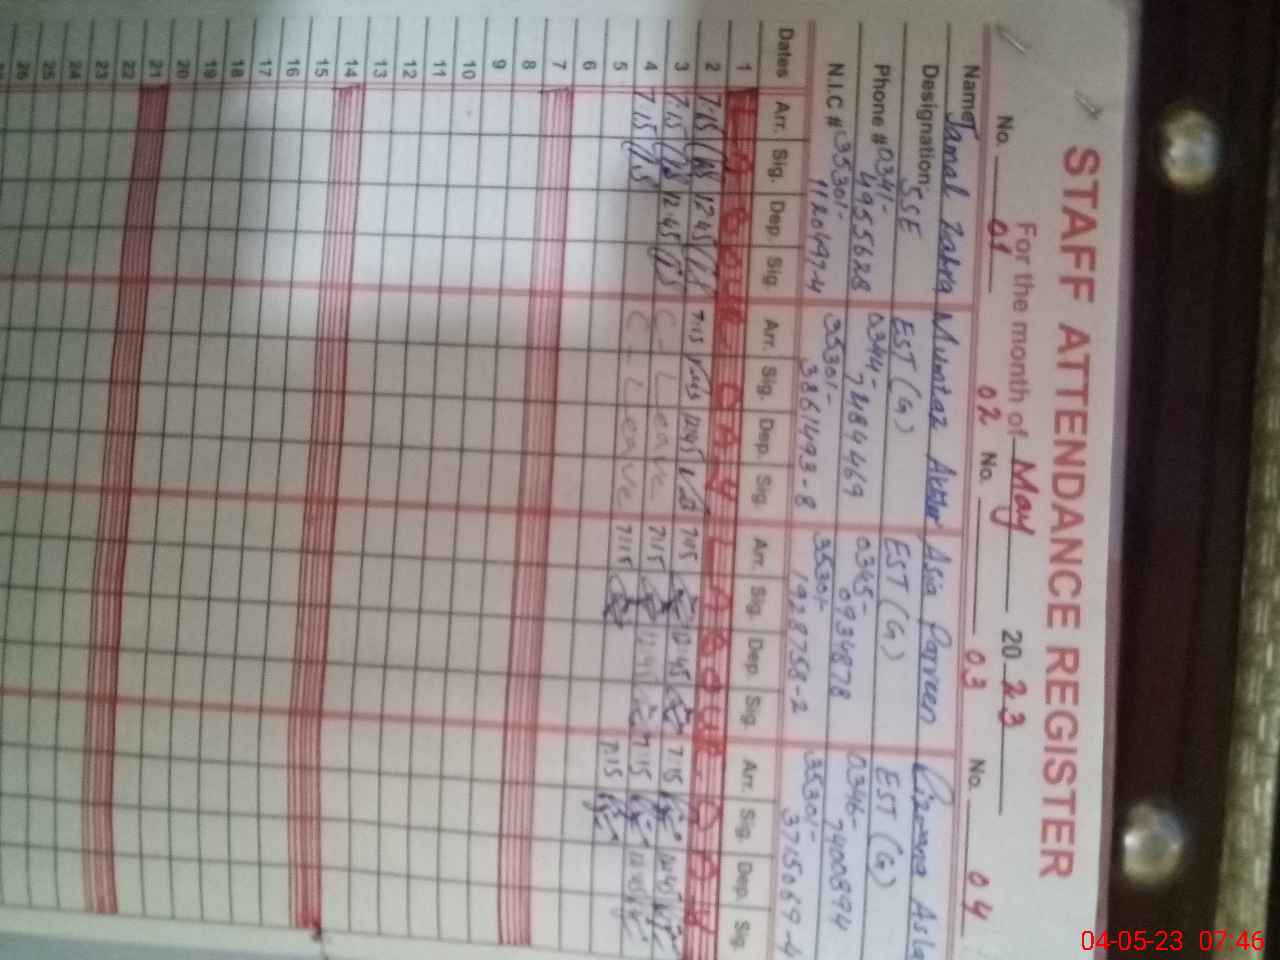 STAFF ATTENDANCE REGISTER
For the month of May 2023
No. 01 02 No. 03 No. 04
Name Jamal Zahra Mumtaz Akhter Asia Parveen Rizwana Asla
Designation: SSE EST (G) EST (G) EST (G)
Phone # 0341- 0344- 0345- 0346-
4955628 7484469 0934878 7400894
N.I.C # 35301- 35301- 35301- 35301-
1120497-4 3861493-8 1928758-2 3715069-4
Dates Arr. Sig. Dep. Sig. Arr. Sig. Dep. Sig. Arr. Sig. Dep. Sig. Arr. Sig. Dep. Sig.
1 LABOUR DAY LABOUR DAY
2 7:15 12:45 7:15 12:45 7:15 12:45 7:15 12:45
3 7:15 12:45 C-Leave 7:15 12:45 7:15 12:45
4 7:15 C-Leave 7:15 7:15
5
6
7
8
9
10
11
12
13
14
15
16
17
18
19
20
21
22
23
24
25
26
04-05-23 07:46